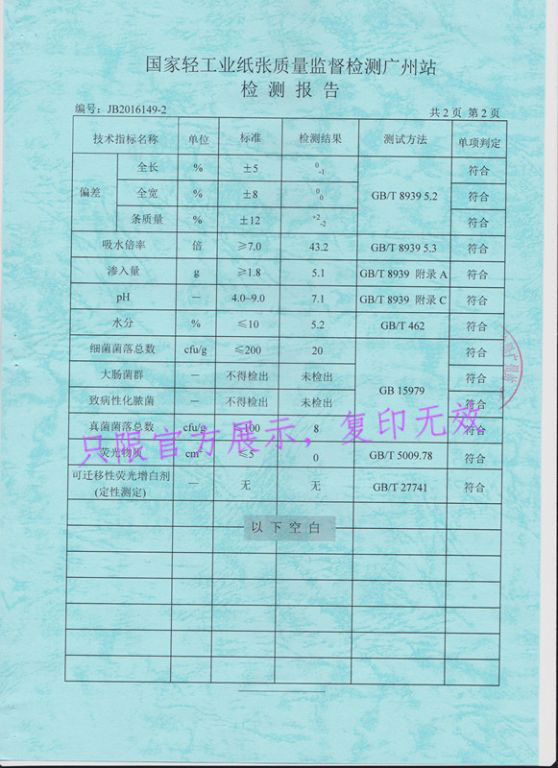 国家轻工业纸张质量监督检测广州站
检 测 报 告
编号：JB2016149-2 共 2 页 第 2 页
技术指标名称 单位 标准 检测结果 测试方法 单项判定
偏差 全长 % ±5 0 -1 GB/T 8939 5.2 符合
全宽 % ±8 0 0 符合
条质量 % ±12 +2 -2 符合
吸水倍率 倍 ≥7.0 43.2 GB/T 8939 5.3 符合
渗入量 g ≥1.8 5.1 GB/T 8939 附录 A 符合
pH — 4.0~9.0 7.1 GB/T 8939 附录 C 符合
水分 % ≤10 5.2 GB/T 462 符合
细菌菌落总数 cfu/g ≤200 20 GB 15979 符合
大肠菌群 — 不得检出 未检出 符合
致病性化脓菌 — 不得检出 未检出 符合
真菌菌落总数 cfu/g ≤100 8 符合
只限官方展示，复印无效
荧光物质 cm² ≤5 0 GB/T 5009.78 符合
可迁移性荧光增白剂
(定性测定) — 无 无 GB/T 27741 符合
以 下 空 白